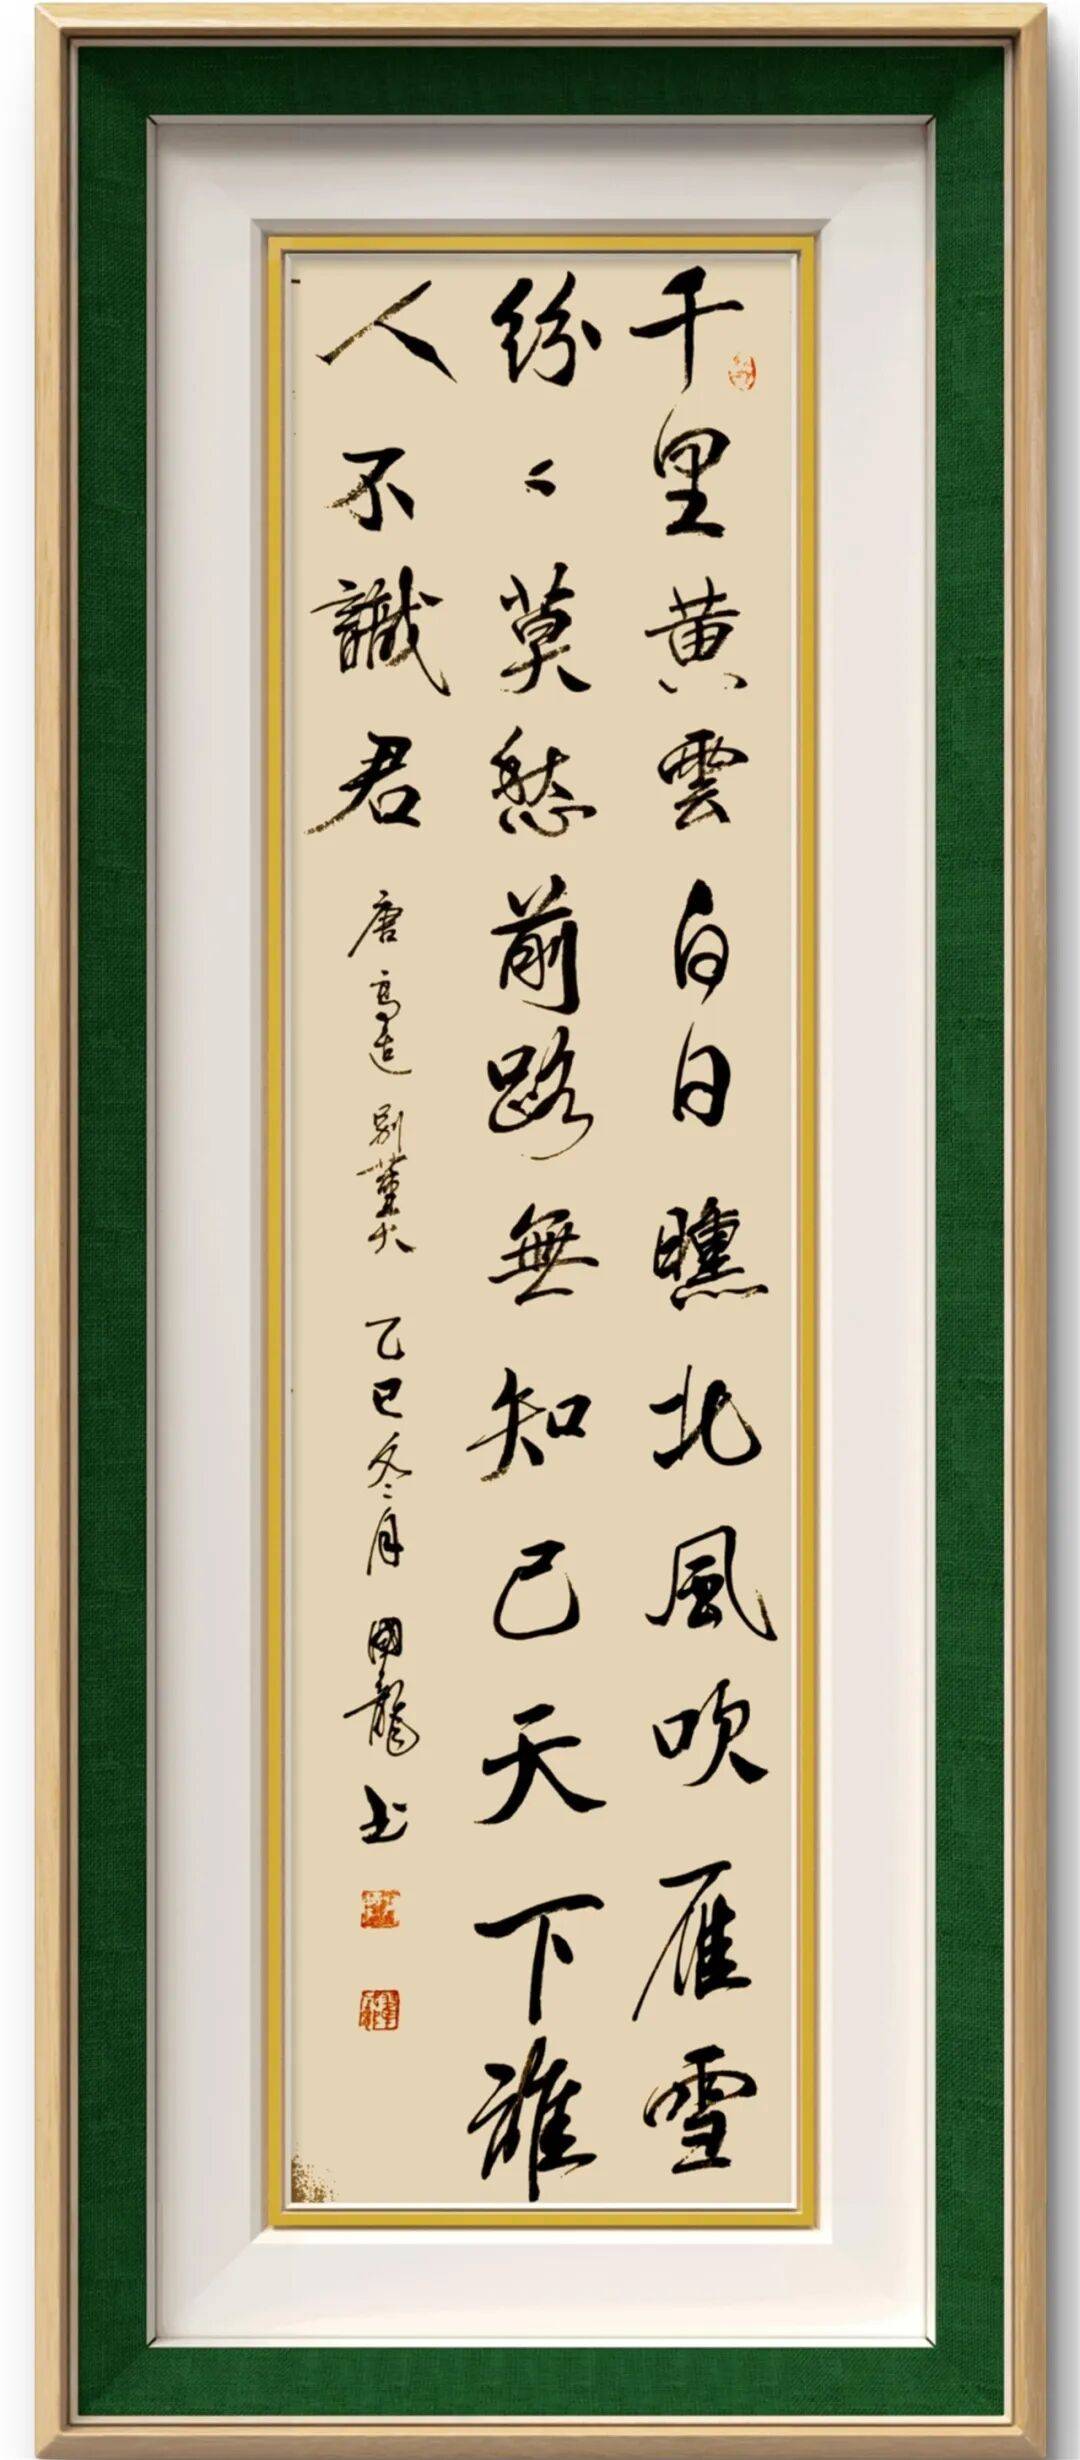 千里黄雲白日曛北風吹雁雪
紛〻莫愁前路無知己天下誰
人不識君 唐高适别董大 乙巳冬月 國龍书